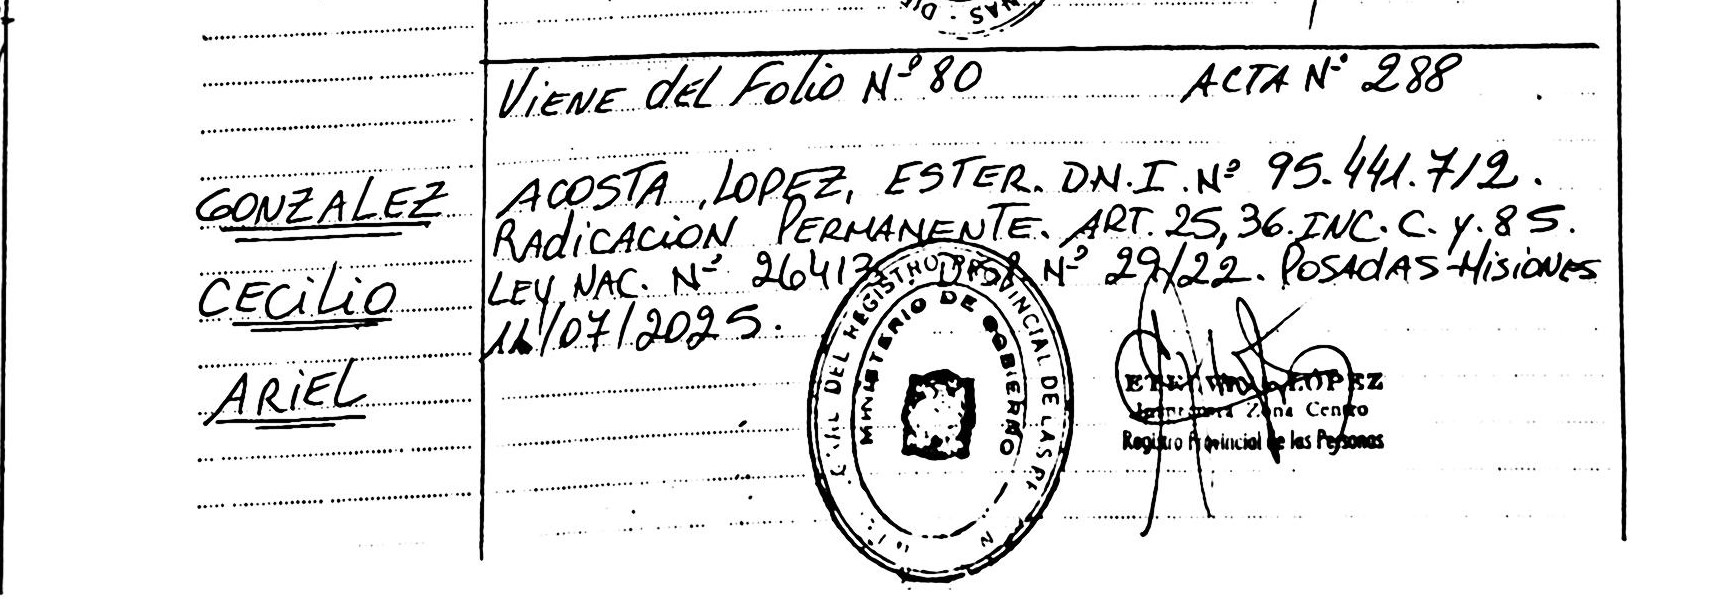 VIENE del Folio Nº 80 ACTA Nº 288
GONZALEZ
CECiLiO
ARiEL
ACOSTA, LOPEZ, ESTER. D.N.I. Nº 95.441.712.
RAdiCACiON PERMANENTE. ART. 25, 36. INC. C. y. 85.
LEY, NAC. Nº 26413 Nº 29/22. POSAdAS-MisiONES
11/07/2025.
DEL REGISTRO PROVINCIAL DE LAS
MINISTERIO DE GOBIERNO
LOPEZ
Zona Centro
Registro Provincial de las Personas